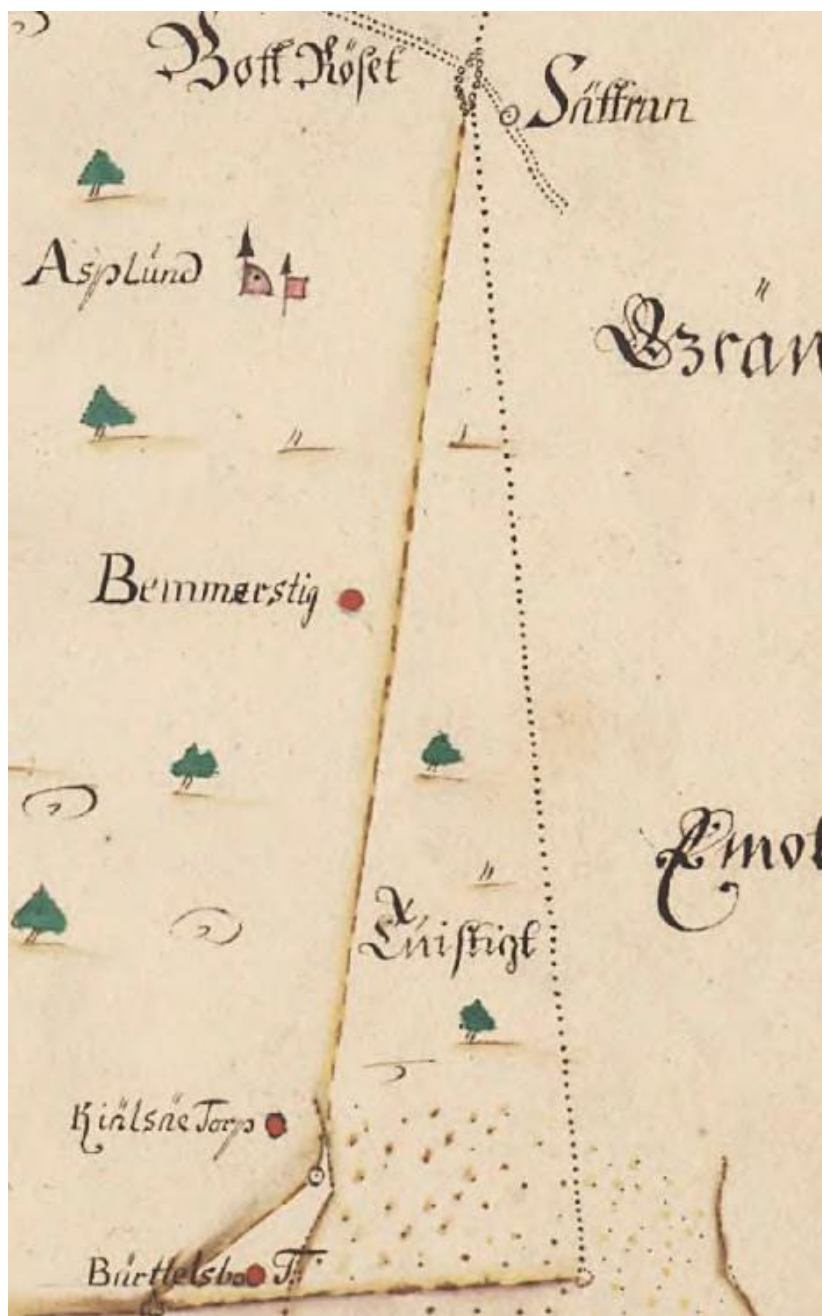 Bott Röset
Säffran
Asplünd
Grän
Bemmerstig
Emot
Tüistigt
Kiälsäe Torp
Bürttelsbo T: